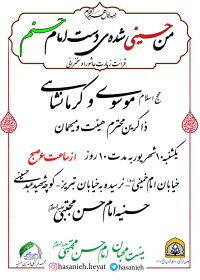 من حسینی شده‌ی دست امام حسنم
قرائت زیارت عاشورا و سخنرانی
حجج اسلام موسوی و کرمانشاهی
ذاکرین محترم هیئت و میهمان
یکشنبه ۱۰ شهریور به مدت ۱۰ روز از ساعت ۶ صبح
خیابان امام خمینی(ره) نرسیده به خیابان تبریز، کوچه شهید عبدحسینی
حسنیه امام حسن مجتبی علیه السلام
هیئت محبان امام حسن مجتبی علیه السلام
@hasanieh.heyat @hasanieh